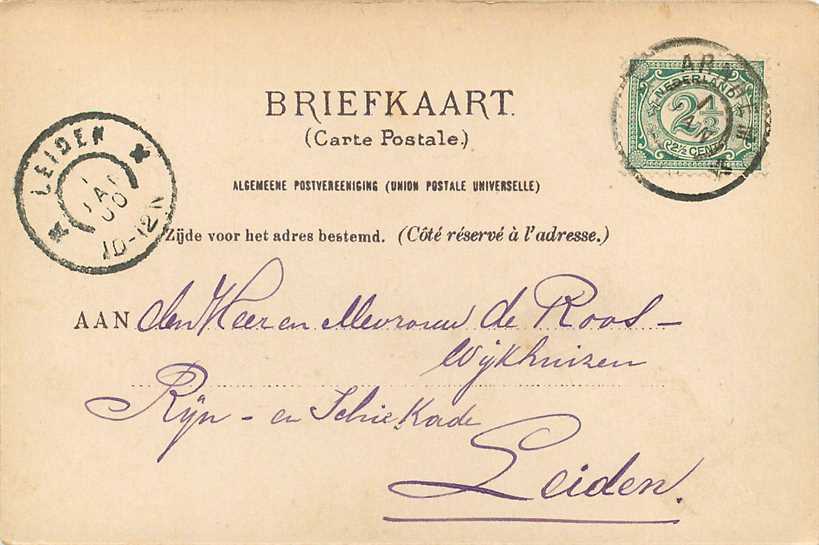 BRIEFKAART.
(Carte Postale.)
ALGEMEENE POSTVEREENIGING (UNION POSTALE UNIVERSELLE)
Zijde voor het adres bestemd. (Côté réservé à l'adresse.)
AAN den Heer en Mevrouw de Roos-
Wijkhuizen
Rijn- en Schiekade
Leiden.
LEIDEN
JAN
00
10-12 V
NEDERLAND
2½
2½ CENT
1
JAN